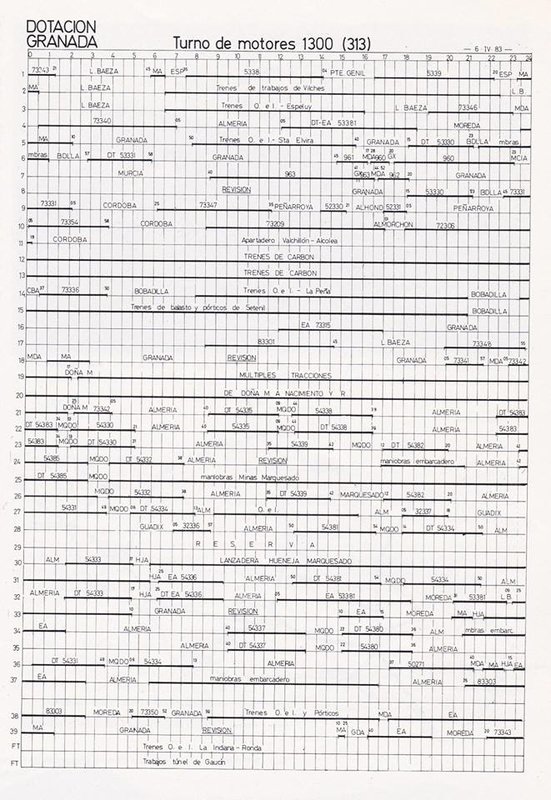 DOTACION
GRANADA
Turno de motores 1300 (313)
— 6 IV 83 —
0 1 2 3 4 5 6 7 8 9 10 11 12 13 14 15 16 17 18 19 20 21 22 23 24
1 73343 L. BAEZA MA ESP 5338 PTE. GENIL 5339 ESP MA
2 MA L. BAEZA Trenes de trabajos de Vilches L.B.
3 L. BAEZA Trenes O. e I. - Espeluy 73346 MDA
4 73340 ALMERIA DT-EA 53381 MOREDA
5 MA GRANADA Trenes O. e I. - Sta Elvira GRANADA DT 53330 BDLLA mbras
6 mbras BDLLA DT 53331 GRANADA 961 MDA 960 GX 960 MCIA
7 MURCIA 963 GX 963 MDA 962 GRANADA
8 REVISION GRANADA 53330 BDLLA 73331
9 73331 CORDOBA 73347 PEÑARROYA 52330 ALHOND 52331 PEÑARROYA
10 73354 CORDOBA 73209 ALMORCHON 72306
11 CORDOBA Apartadero Valchillón - Alcolea
12 TRENES DE CARBON
13 TRENES DE CARBON
14 CBA 73336 BOBADILLA Trenes O. e I. - La Peña BOBADILLA
15 Trenes de balasto y pórticos de Setenil BOBADILLA
16 EA 73315 GRANADA
17 83301 L. BAEZA 73348
18 MDA MA GRANADA REVISION GRANADA 73341 MDA 73342
19 DOÑA M MULTIPLES TRACCIONES
20 DE DOÑA M A NACIMIENTO Y R
21 DOÑA M 73342 ALMERIA DT 54335 MQDO 54338 ALMERIA DT 54383
22 DT 54383 MQDO 54330 ALMERIA 54335 MQDO DT 54338 ALMERIA 54383
23 54383 MQDO DT 54330 ALMERIA 54339 MQDO DT 54382 ALMERIA
24 54385 MQDO DT 54332 ALMERIA REVISION maniobras embarcadero
25 DT 54385 MQDO maniobras Minas Marquesado
26 MQDO 54332 ALMERIA DT 54339 MARQUESADO 54382 ALMERIA
27 54331 MQDO DT 54334 ALM O. e I. ALM 52337 GUADIX
28 GUADIX 52336 ALMERIA 54381 MQDO DT 54334 ALM
29 R E S E R V A
30 ALM 54333 HJA LANZADERA HUENEJA MARQUESADO
31 HJA EA 54336 ALMERIA DT 54381 MQDO 54334 ALM.
32 ALMERIA DT 54333 HJA DT EA 54336 ALMERIA EA 53381 MOREDA 53381 L.B.
33 GRANADA REVISION EA MOREDA MA HJA
34 EA ALMERIA 54337 MQDO DT 54380 ALM mbras embarc.
35 ALMERIA DT 54337 MQDO 54380 ALMERIA
36 DT 54331 MQDO 54334 ALMERIA 50271 MDA MA HJA EA
37 EA ALMERIA maniobras embarcadero ALMERIA 83303
38 83303 MOREDA 73350 GRANADA Trenes O. e I. y Pórticos MDA EA
39 MA GRANADA REVISION MA GDA EA MOREDA 73343
FT Trenes O. e I. La Indiana - Ronda
FT Trabajos túnel de Gaucín